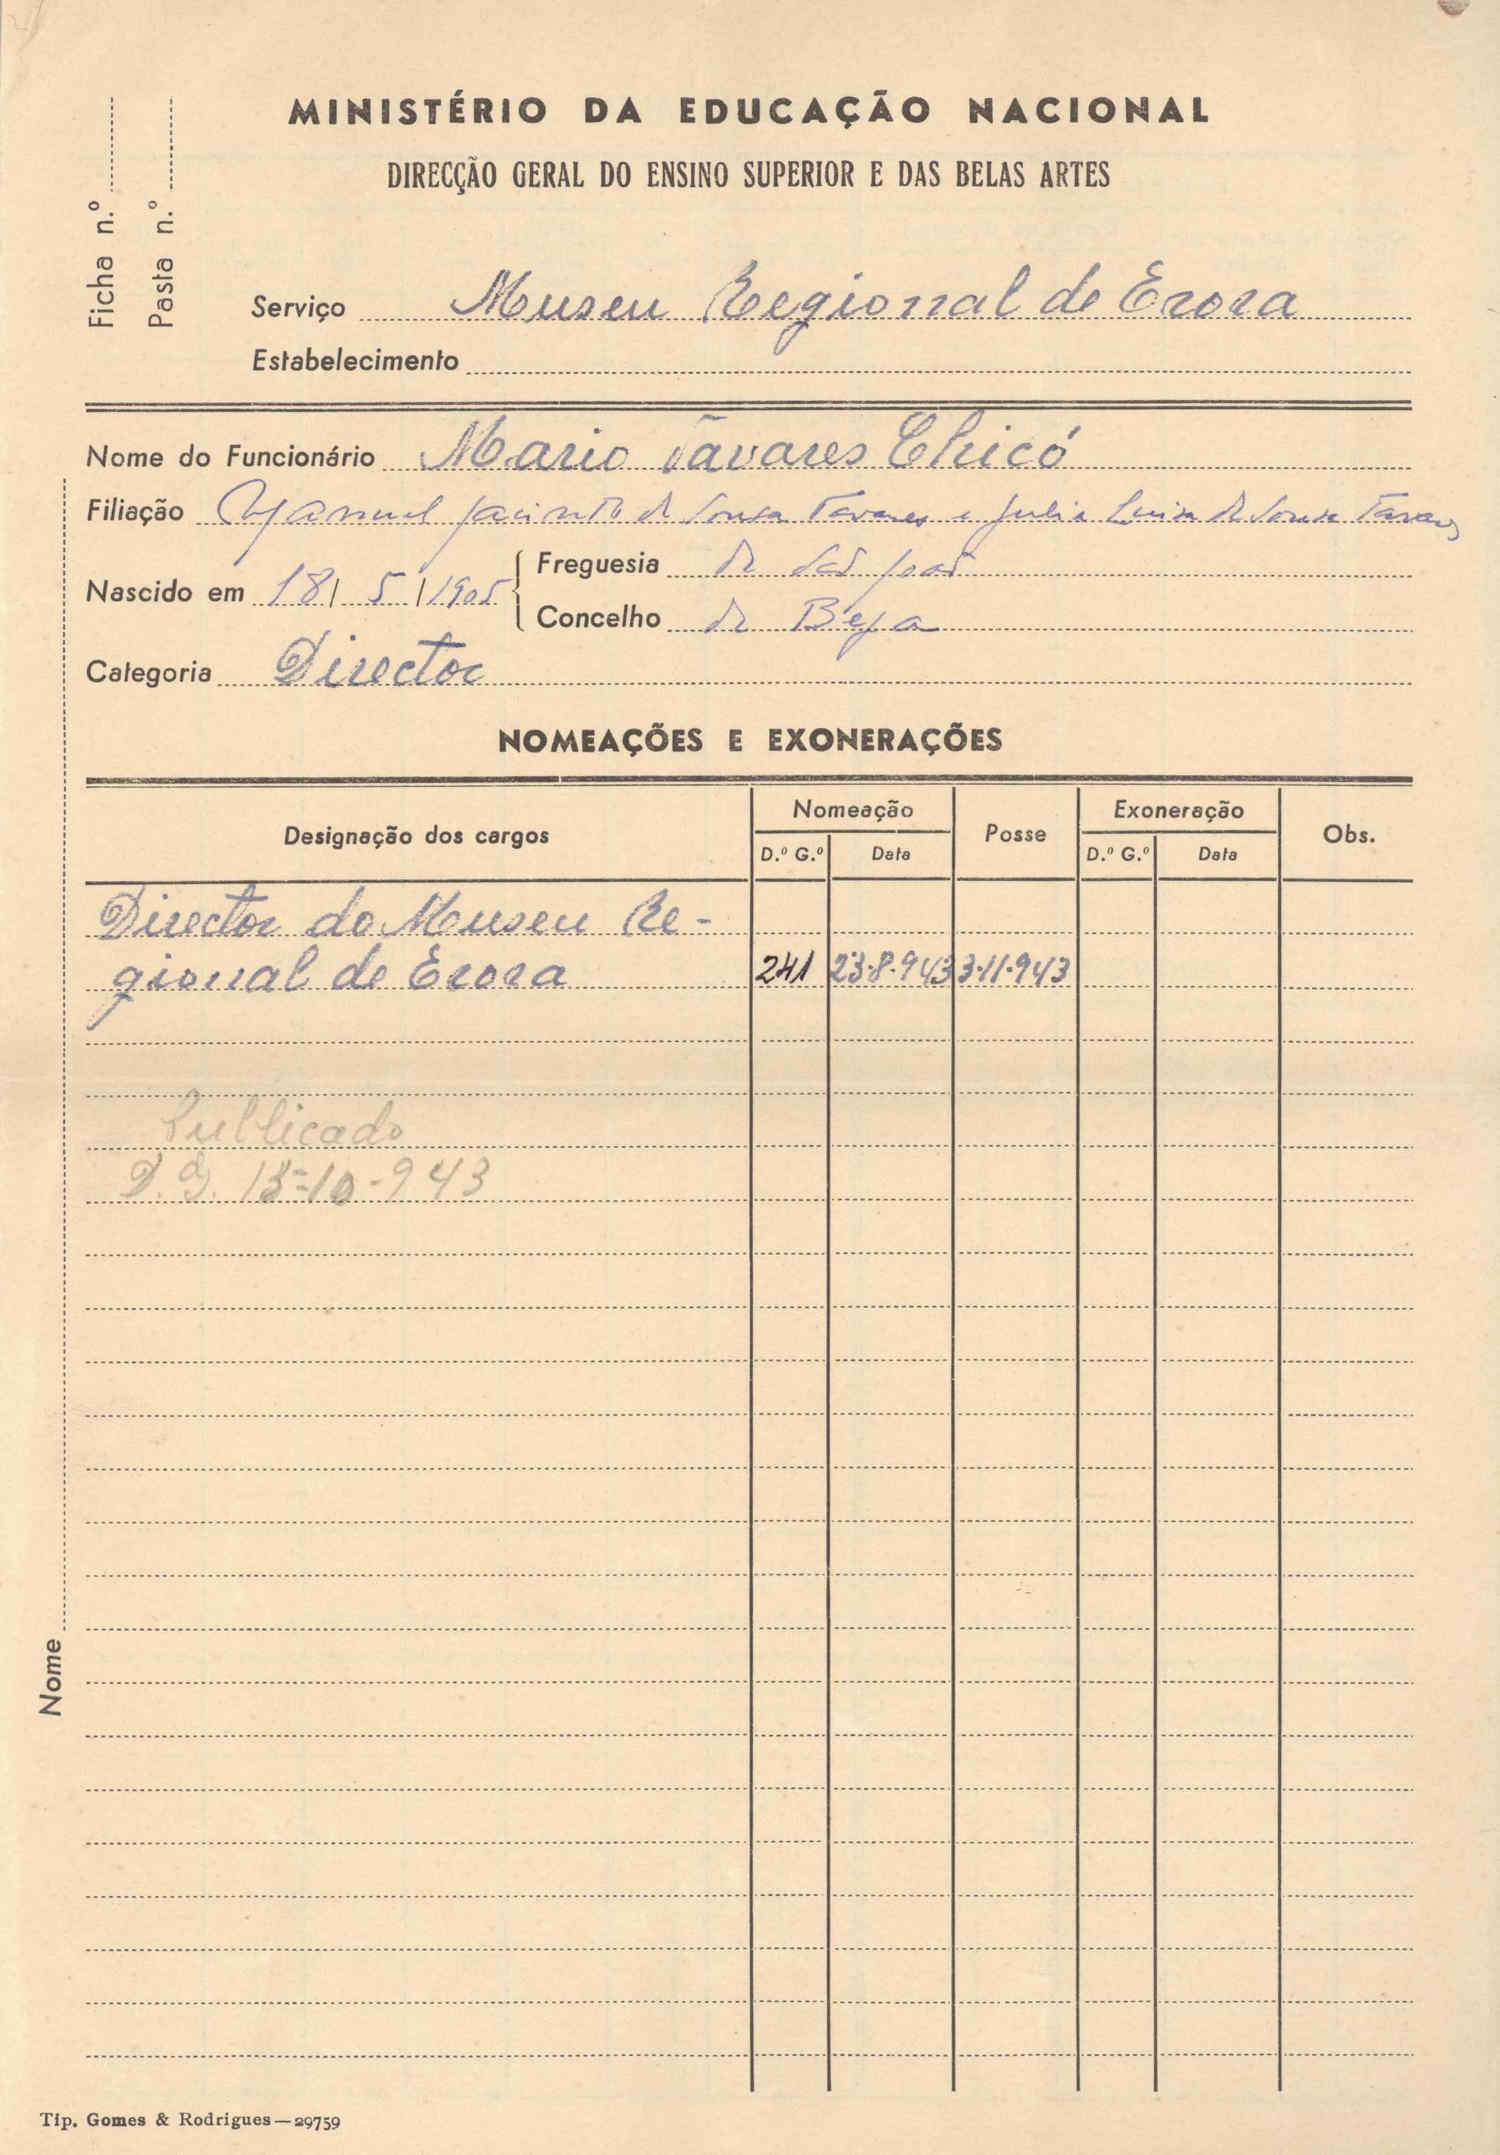 MINISTÉRIO DA EDUCAÇÃO NACIONAL
DIRECÇÃO GERAL DO ENSINO SUPERIOR E DAS BELAS ARTES
Ficha n.º
Pasta n.º
Serviço Museu Regional de Evora
Estabelecimento
Nome do Funcionário Mario Tavares Chicó
Filiação Manuel Jacinto de Sousa Tavares e Julia Luisa de Sousa Tavares
Nascido em 18/ 5 /1905
Freguesia de São João
Concelho de Beja
Categoria Director
NOMEAÇÕES E EXONERAÇÕES
Designação dos cargos Nomeação Posse Exoneração Obs.
D.º G.º Data D.º G.º Data
Director do Museu Re-
gional de Evora 241 23-8-943 3-11-943
Publicado
D. G. 15-10-943
Nome
Tip. Gomes & Rodrigues — 29759